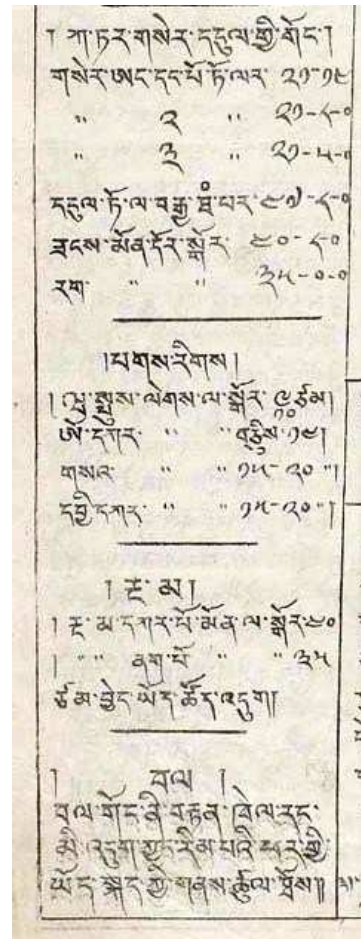 ། ཀ་ཏར་གསེར་དངུལ་གྱི་གོང་།
གསེར་ཨང་དང་པོ་ཏོ་ལར་ ༢༡-༡༩
" ༢ " ༢༡-༨-༠
" ༣ " ༢༡-༥-༠
དངུལ་ཏོ་ལ་བརྒྱ་ཐཾ་པར་ ༨-༠
ཟངས་མོན་དོར་སྒོར་ ༩༠-༨-༠
རག་ " " ༣༥-༠-༠
།པགས་རིགས།
སྤུས་ལེགས་ལ་སྒོར་ ཙམ།
" "
གསའ་ " " ༡༥-༢༠ "།
དབྱི་དཀར་ " " ༡༥-༢༠ "།
། རྔ་མ།
། རྔ་མ་དཀར་པོ་མོན་ལ་སྒོར་༩༠
། " " ནག་པོ " " ༣༥
ཙམ་བྱེད་ཡོད་ཚོད་འདུག།
། བལ །
བལ་གོང་ནི་བརྟན་ཁེལ་རང་
མི་འདུག་ཀྱང་རིམ་པའི་ཕར་གྱི་
ཡོད་སྐད་ཀྱི་གནས་ཚུལ་ཐོས༎